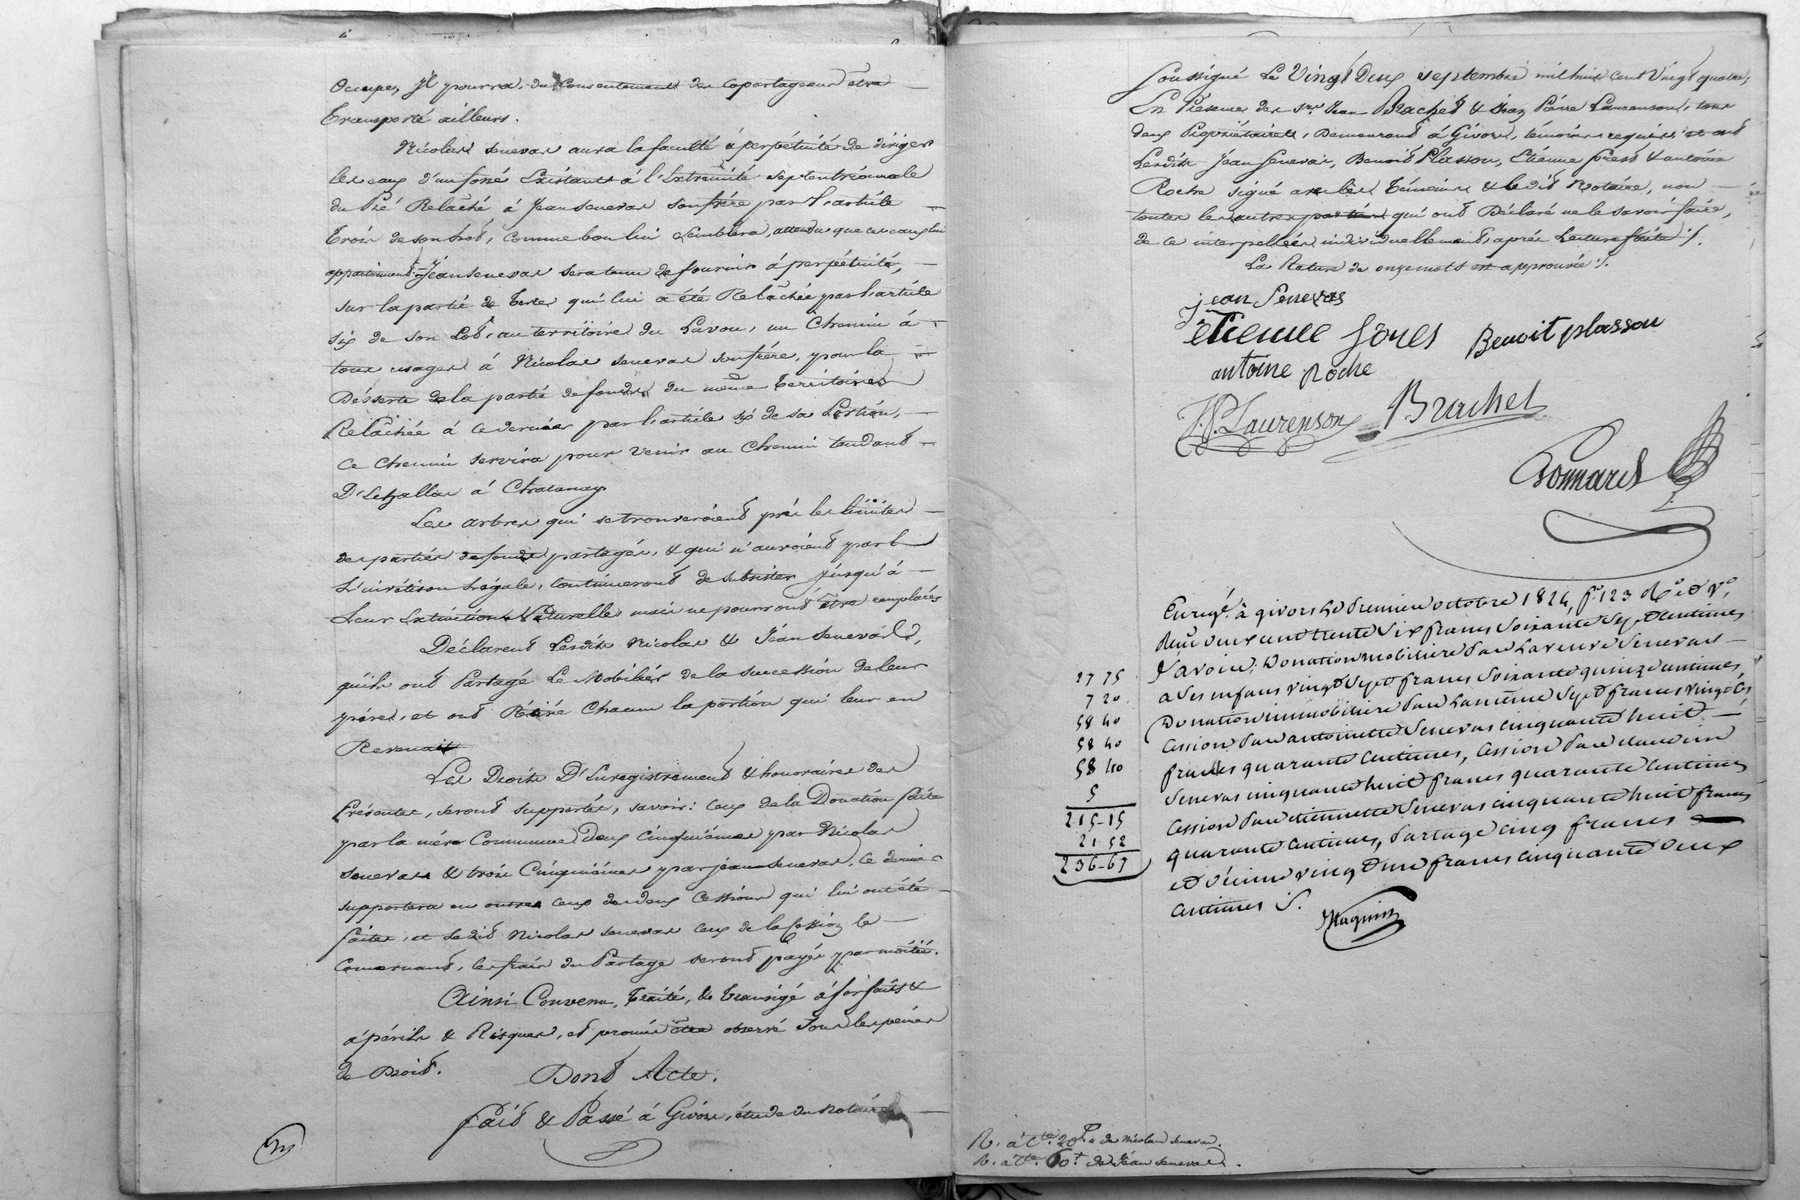 Occupe, Il pourra, du Consentement des copartageans être
Transporté ailleurs.
Nicolas senevas aura la faculté à perpétuité de diriger
les eaux d'un fossé Existant à l'Extremité septentrionale
du Pré Relâché à Jean senevas son frère par l'article
trois de son lot, comme bon lui semblera, attendu que ces eaux lui
appartiennent. Jean senevas sera tenu de fournir à perpétuité,
sur la partie de Terre qui lui a été Relâchée par l'article
six de son Lot, au territoire du Luvou, un Chemin à
tous usages à Nicolas senevas son frère, pour la
Désserte de la partie de fonds du même Territoire
Relâchée à ce dernier par l'article six de sa Portion,
ce Chemin servira pour venir au Chemin tendant
à Chatanay
Les arbres qui se trouveroient près les limites
des parties de fonds partagés, & qui n'auroient pas
légale, Continueront de subsister jusqu'à
Leur Extinction Naturelle mais ne pourront être remplacés
Déclarent Lesdits Nicolas & Jean Senevas,
qu'ils ont Partagé Le Mobilier de la succession de leur
père, et ont Retiré Chacun la portion qui leur en
Revenait
Les Droits D'Enregistrement & honoraires des
Présentes, seront supportés, savoir: ceux de la Donation faite
par la mère Commune Deux Cinquièmes par Nicolas
senevas & trois Cinquièmes par jean senevas, Ce dernier
supportera en outre ceux des deux Cessions qui lui ont été
faites, et Ledit Nicolas senevas ceux de la Cession le
Concernant, les frais du Partage seront payés par moitié.
Ainsi Convenu, Traité, & Transigé à forfaits &
à périls & Risques, et promis être observé sous les peines
de Droit. Dont Acte.
Fait & Passé à Givors, étude du Notaire
Soussigné Le Vingt Deux septembre mil huit cent Vingt quatre,
En Présence des Srs Jean Brachet & Jean Pierre Laurenson, tous
deux Propriétaires, Demeurant à Givors, témoins requis et ont
Lesdits Jean Senevas, Benoit Plasson, Etienne & antoine
Roche signé avec les Témoins & ledit Notaire, non
toutes les autres parties qui ont Déclaré ne le savoir faire,
de ce interpellées individuellement, après Lecture faite ./.
La Rature de onze mots est approuvée ./.
jean Senevas
Etienne Benoit plasson
antoine Roche
J.P. Laurenson Brachet
Bonnaret
Enregé. à givors le premier octobre 1824, fo. 123 Ro. et Vo.
Reçu deux cent trente six francs soixante sept centimes
Savoir: Donation mobilière par la veuve Senevas
27 75 à ses enfans vingt sept francs soixante quinze centimes
7 20 Donation immobilière par la même sept francs vingt cs
58 40 Cession par antoinette Senevas cinquante huit
58 40 francs quarante centimes, Cession par claudine
58 40 Senevas cinquante huit francs quarante centimes
5 Cession par etiennette Senevas cinquante huit francs
215-15 quarante centimes, Partage cinq francs
21 52 et décime vingt un francs cinquante deux
236-67 centimes ./.
Maguin
R. à Cte. 20f. de Nicolas senevas.
R. à Cte. 60f. de Jean senevas.